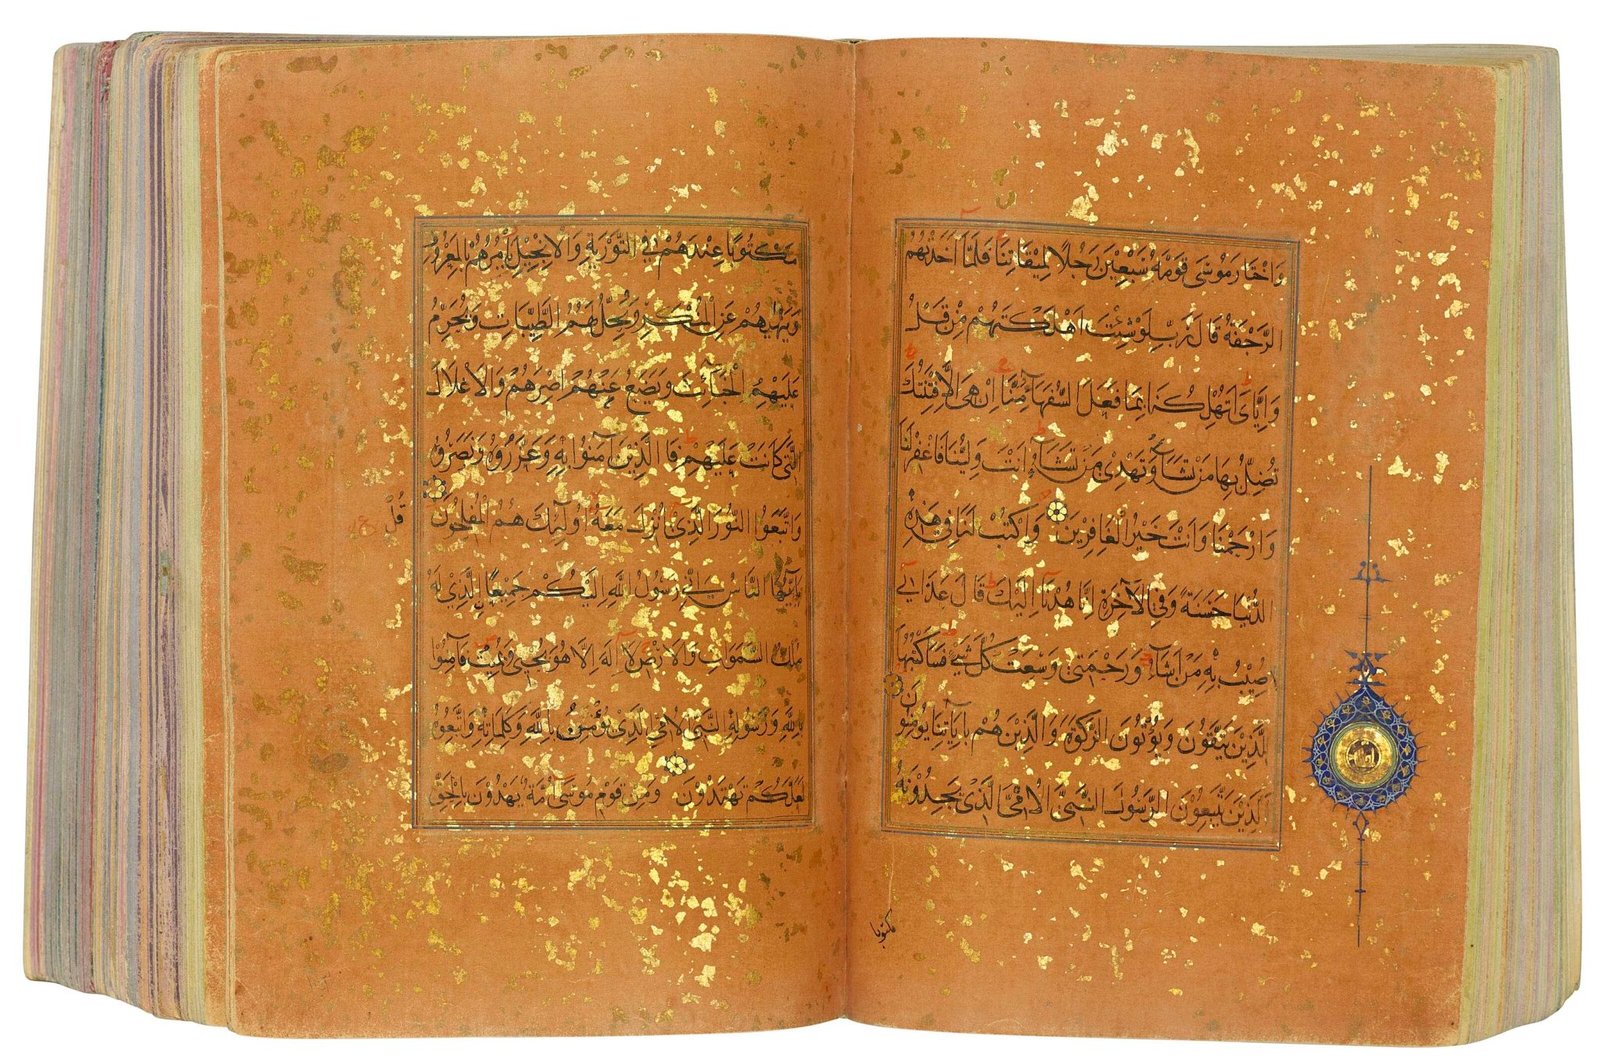 وَاخْتَارَ مُوسَى قَوْمَهُ سَبْعِينَ رَجُلًا لِمِيقَاتِنَا فَلَمَّا أَخَذَتْهُمُ
الرَّجْفَةُ قَالَ رَبِّ لَوْ شِئْتَ أَهْلَكْتَهُمْ مِنْ قَبْلُ
وَإِيَّايَ أَتُهْلِكُنَا بِمَا فَعَلَ السُّفَهَاءُ مِنَّا إِنْ هِيَ إِلَّا فِتْنَتُكَ
تُضِلُّ بِهَا مَنْ تَشَاءُ وَتَهْدِي مَنْ تَشَاءُ أَنْتَ وَلِيُّنَا فَاغْفِرْ لَنَا
وَارْحَمْنَا وَأَنْتَ خَيْرُ الْغَافِرِينَ وَاكْتُبْ لَنَا فِي هَذِهِ
الدُّنْيَا حَسَنَةً وَفِي الْآخِرَةِ إِنَّا هُدْنَا إِلَيْكَ قَالَ عَذَابِي
أُصِيبُ بِهِ مَنْ أَشَاءُ وَرَحْمَتِي وَسِعَتْ كُلَّ شَيْءٍ فَسَأَكْتُبُهَا
لِلَّذِينَ يَتَّقُونَ وَيُؤْتُونَ الزَّكَوةَ وَالَّذِينَ هُمْ بِآيَاتِنَا يُؤْمِنُونَ
الَّذِينَ يَتَّبِعُونَ الرَّسُولَ النَّبِيَّ الْأُمِّيَّ الَّذِي يَجِدُونَهُ
مكتوبا
مَكْتُوبًا عِنْدَهُمْ فِي التَّوْرَيةِ وَالْإِنْجِيلِ يَأْمُرُهُمْ بِالْمَعْرُوفِ
وَيَنْهَيهُمْ عَنِ الْمُنْكَرِ وَيُحِلُّ لَهُمُ الطَّيِّبَاتِ وَيُحَرِّمُ
عَلَيْهِمُ الْخَبَآئِثَ وَيَضَعُ عَنْهُمْ إِصْرَهُمْ وَالْأَغْلَالَ
الَّتِي كَانَتْ عَلَيْهِمْ فَالَّذِينَ آمَنُوا بِهِ وَعَزَّرُوهُ وَنَصَرُوهُ
وَاتَّبَعُوا النُّورَ الَّذِي أُنْزِلَ مَعَهُ أُولَئِكَ هُمُ الْمُفْلِحُونَ
قُلْ
يَا أَيُّهَا النَّاسُ إِنِّي رَسُولُ اللَّهِ إِلَيْكُمْ جَمِيعًا الَّذِي لَهُ
مُلْكُ السَّمَوَاتِ وَالْأَرْضِ لَا إِلَهَ إِلَّا هُوَ يُحْيِي وَيُمِيتُ فَآمِنُوا
بِاللَّهِ وَرَسُولِهِ النَّبِيِّ الْأُمِّيِّ الَّذِي يُؤْمِنُ بِاللَّهِ وَكَلِمَاتِهِ وَاتَّبِعُوهُ
لَعَلَّكُمْ تَهْتَدُونَ وَمِنْ قَوْمِ مُوسَى أُمَّةٌ يَهْدُونَ بِالْحَقِّ